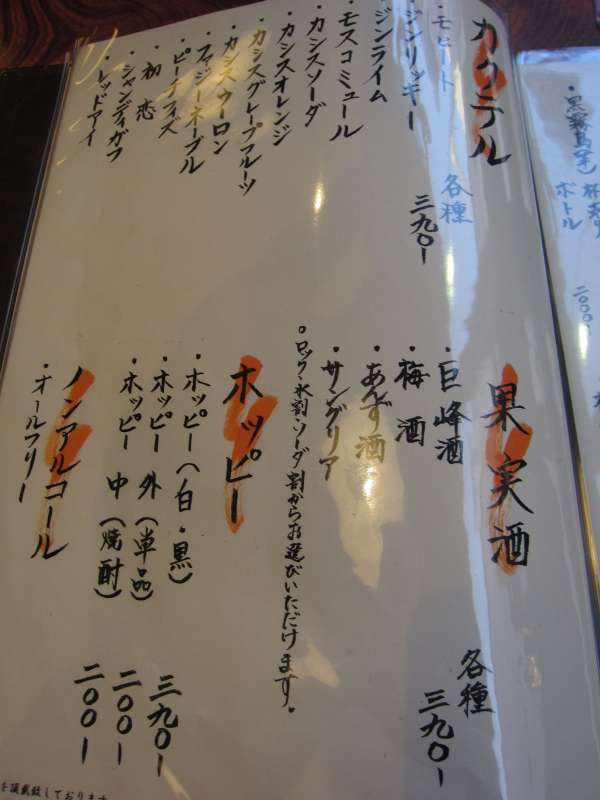 カクテル
・モヒート
・ジンリッキー
・ジンライム
・モスコミュール
・カシスソーダ
・カシスオレンジ
・カシスグレープフルーツ
・カシスウーロン
・ファジーネーブル
・ピーチフィズ
・初恋
・シャンディガフ
・レッドアイ
各種
三九〇ー
果実酒
・巨峰酒
・梅酒
・あんず酒
・サングリア
各種
三九〇ー
。ロック・水割・ソーダ割からお選びいただけます。
ホッピー
・ホッピー(白・黒)
三九〇ー
・ホッピー 外(単品)
二〇〇ー
・ホッピー 中(焼酎)
二〇〇ー
ノンアルコール
・オールフリー
を頂戴致しております
・黒霧島
ボトル
二〇〇〇ー